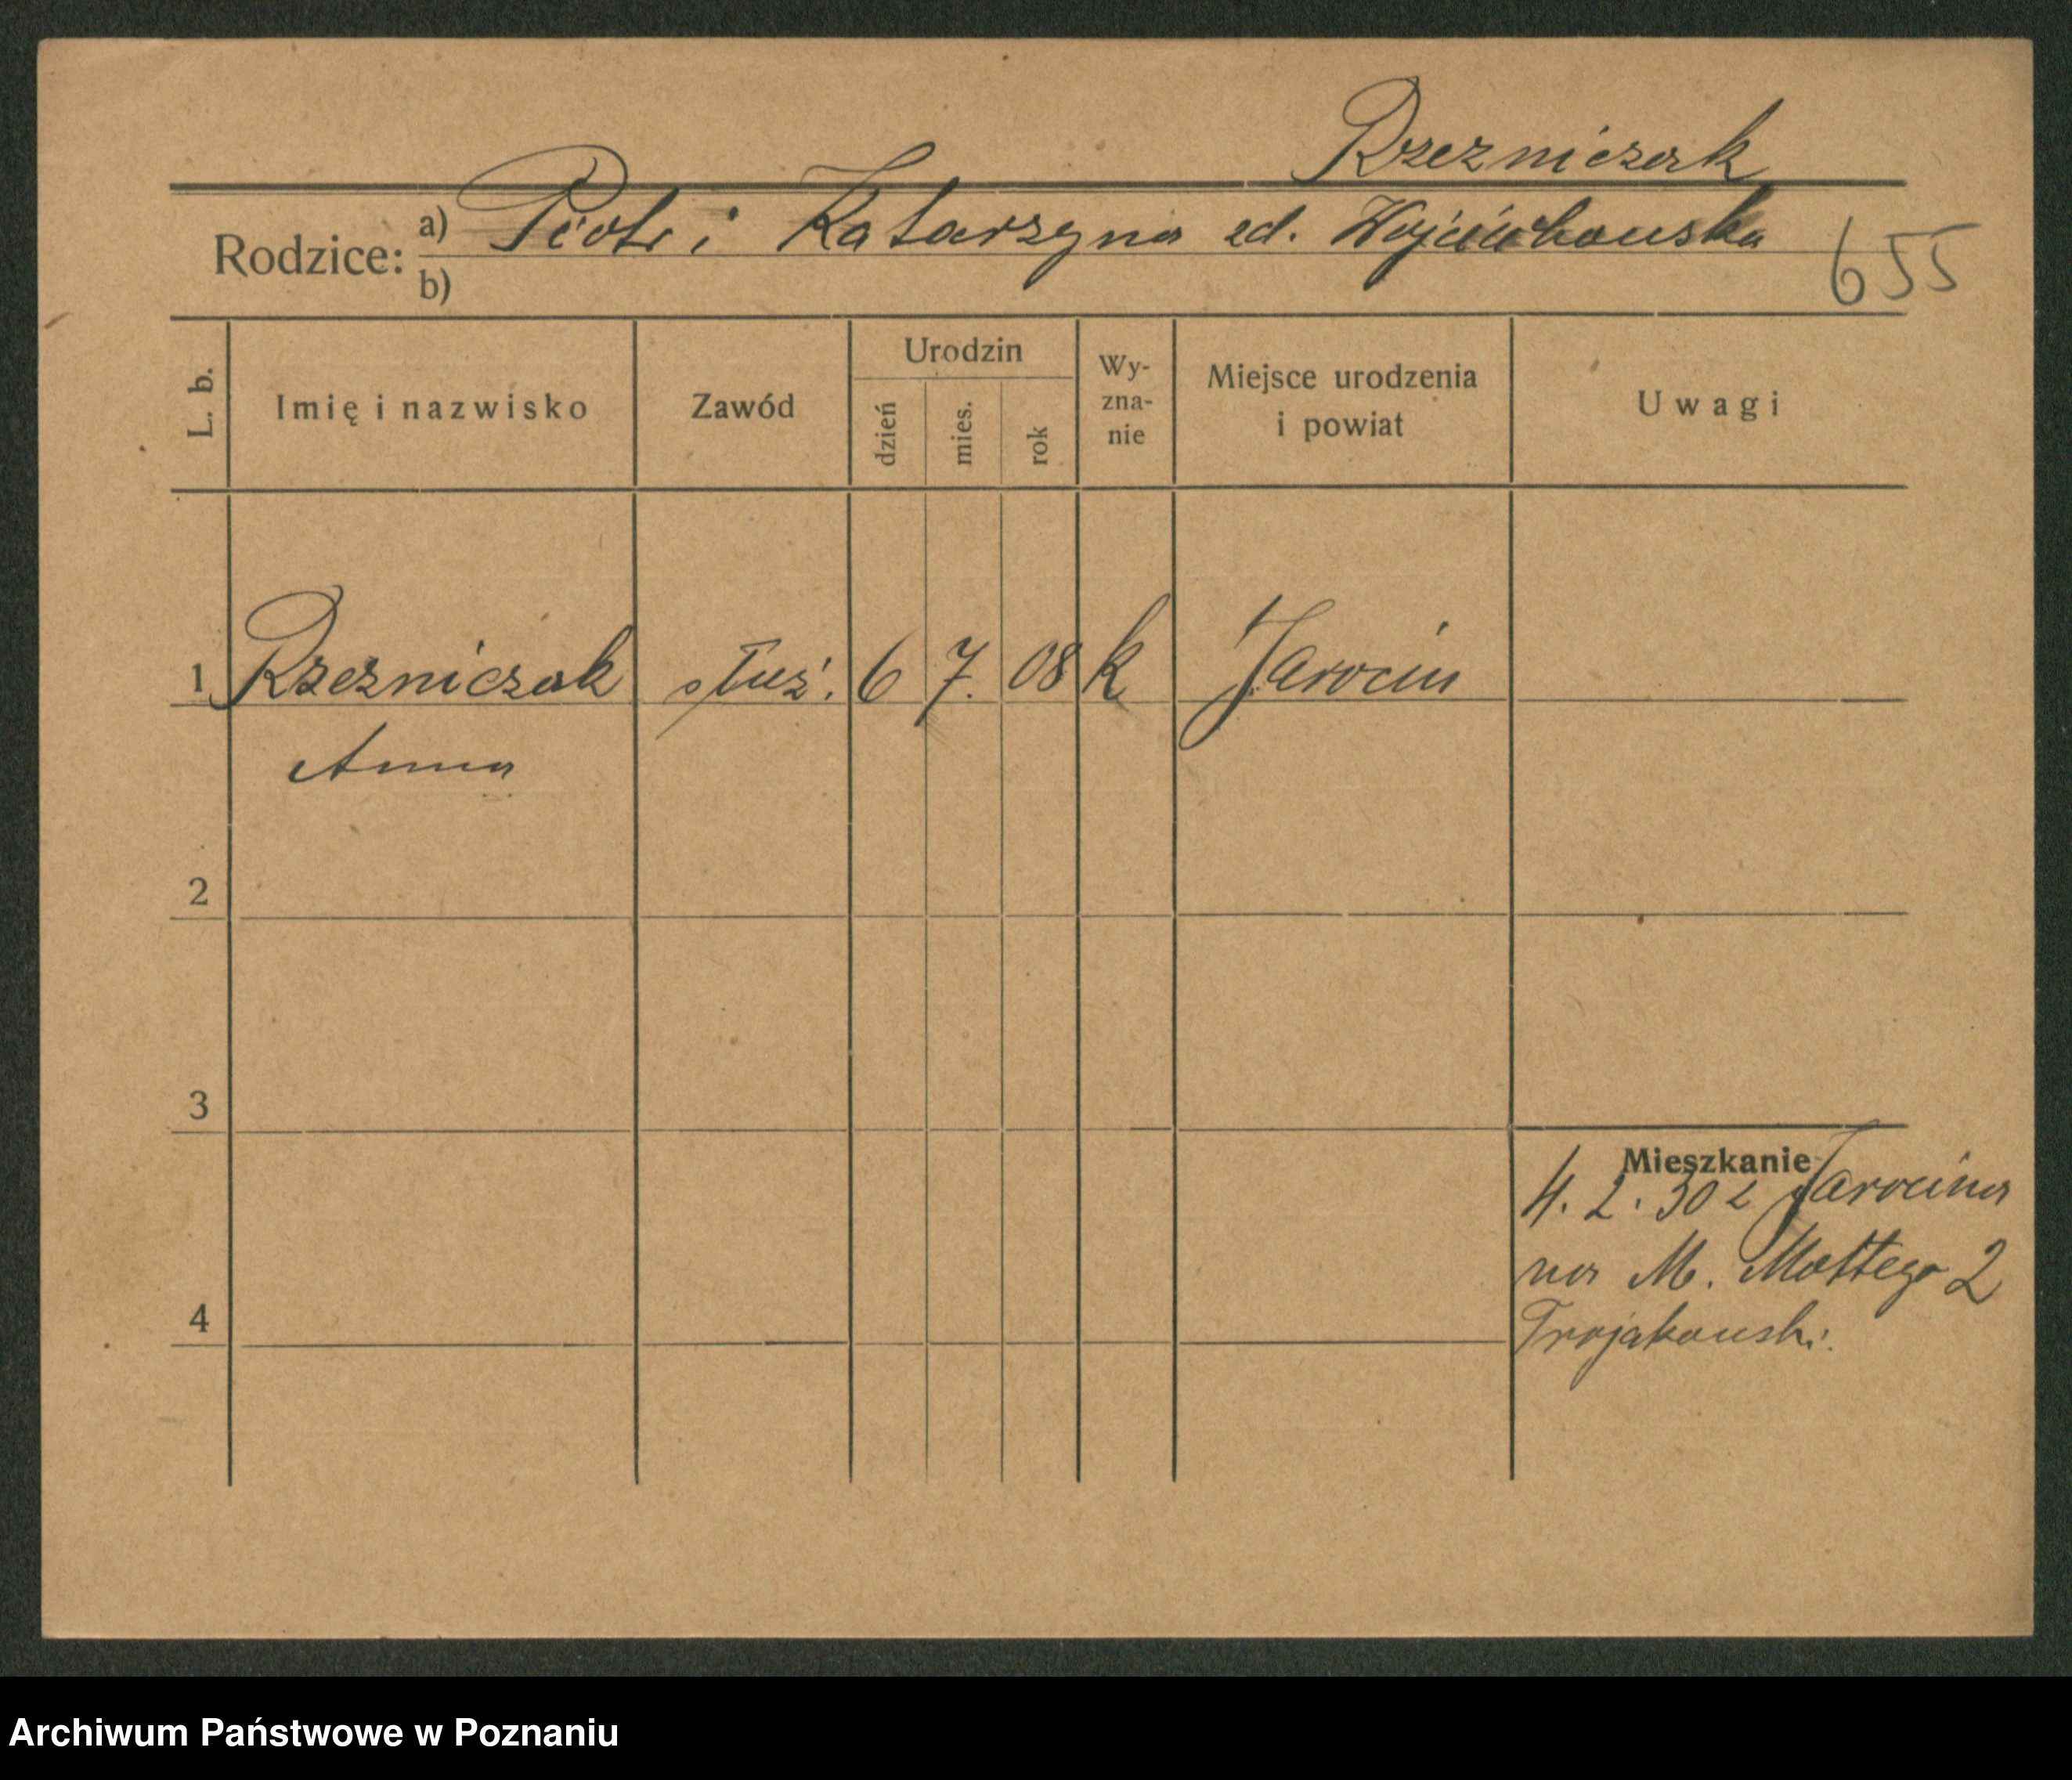 Rzezniczak
Rodzice: a) Piotr i Katarzyna zd. Wojciechowska
b)
655
L. b. Imię i nazwisko Zawód Urodzin dzień mies. rok Wy-zna-nie Miejsce urodzenia i powiat Uwagi
1 Rzezniczak służ. 6 7. 08 k Jarocin
Anna
2
3
Mieszkanie
4. 2. 30 z Jarocina
na M. Mottego 2
4
Trojakowski.
Archiwum Państwowe w Poznaniu